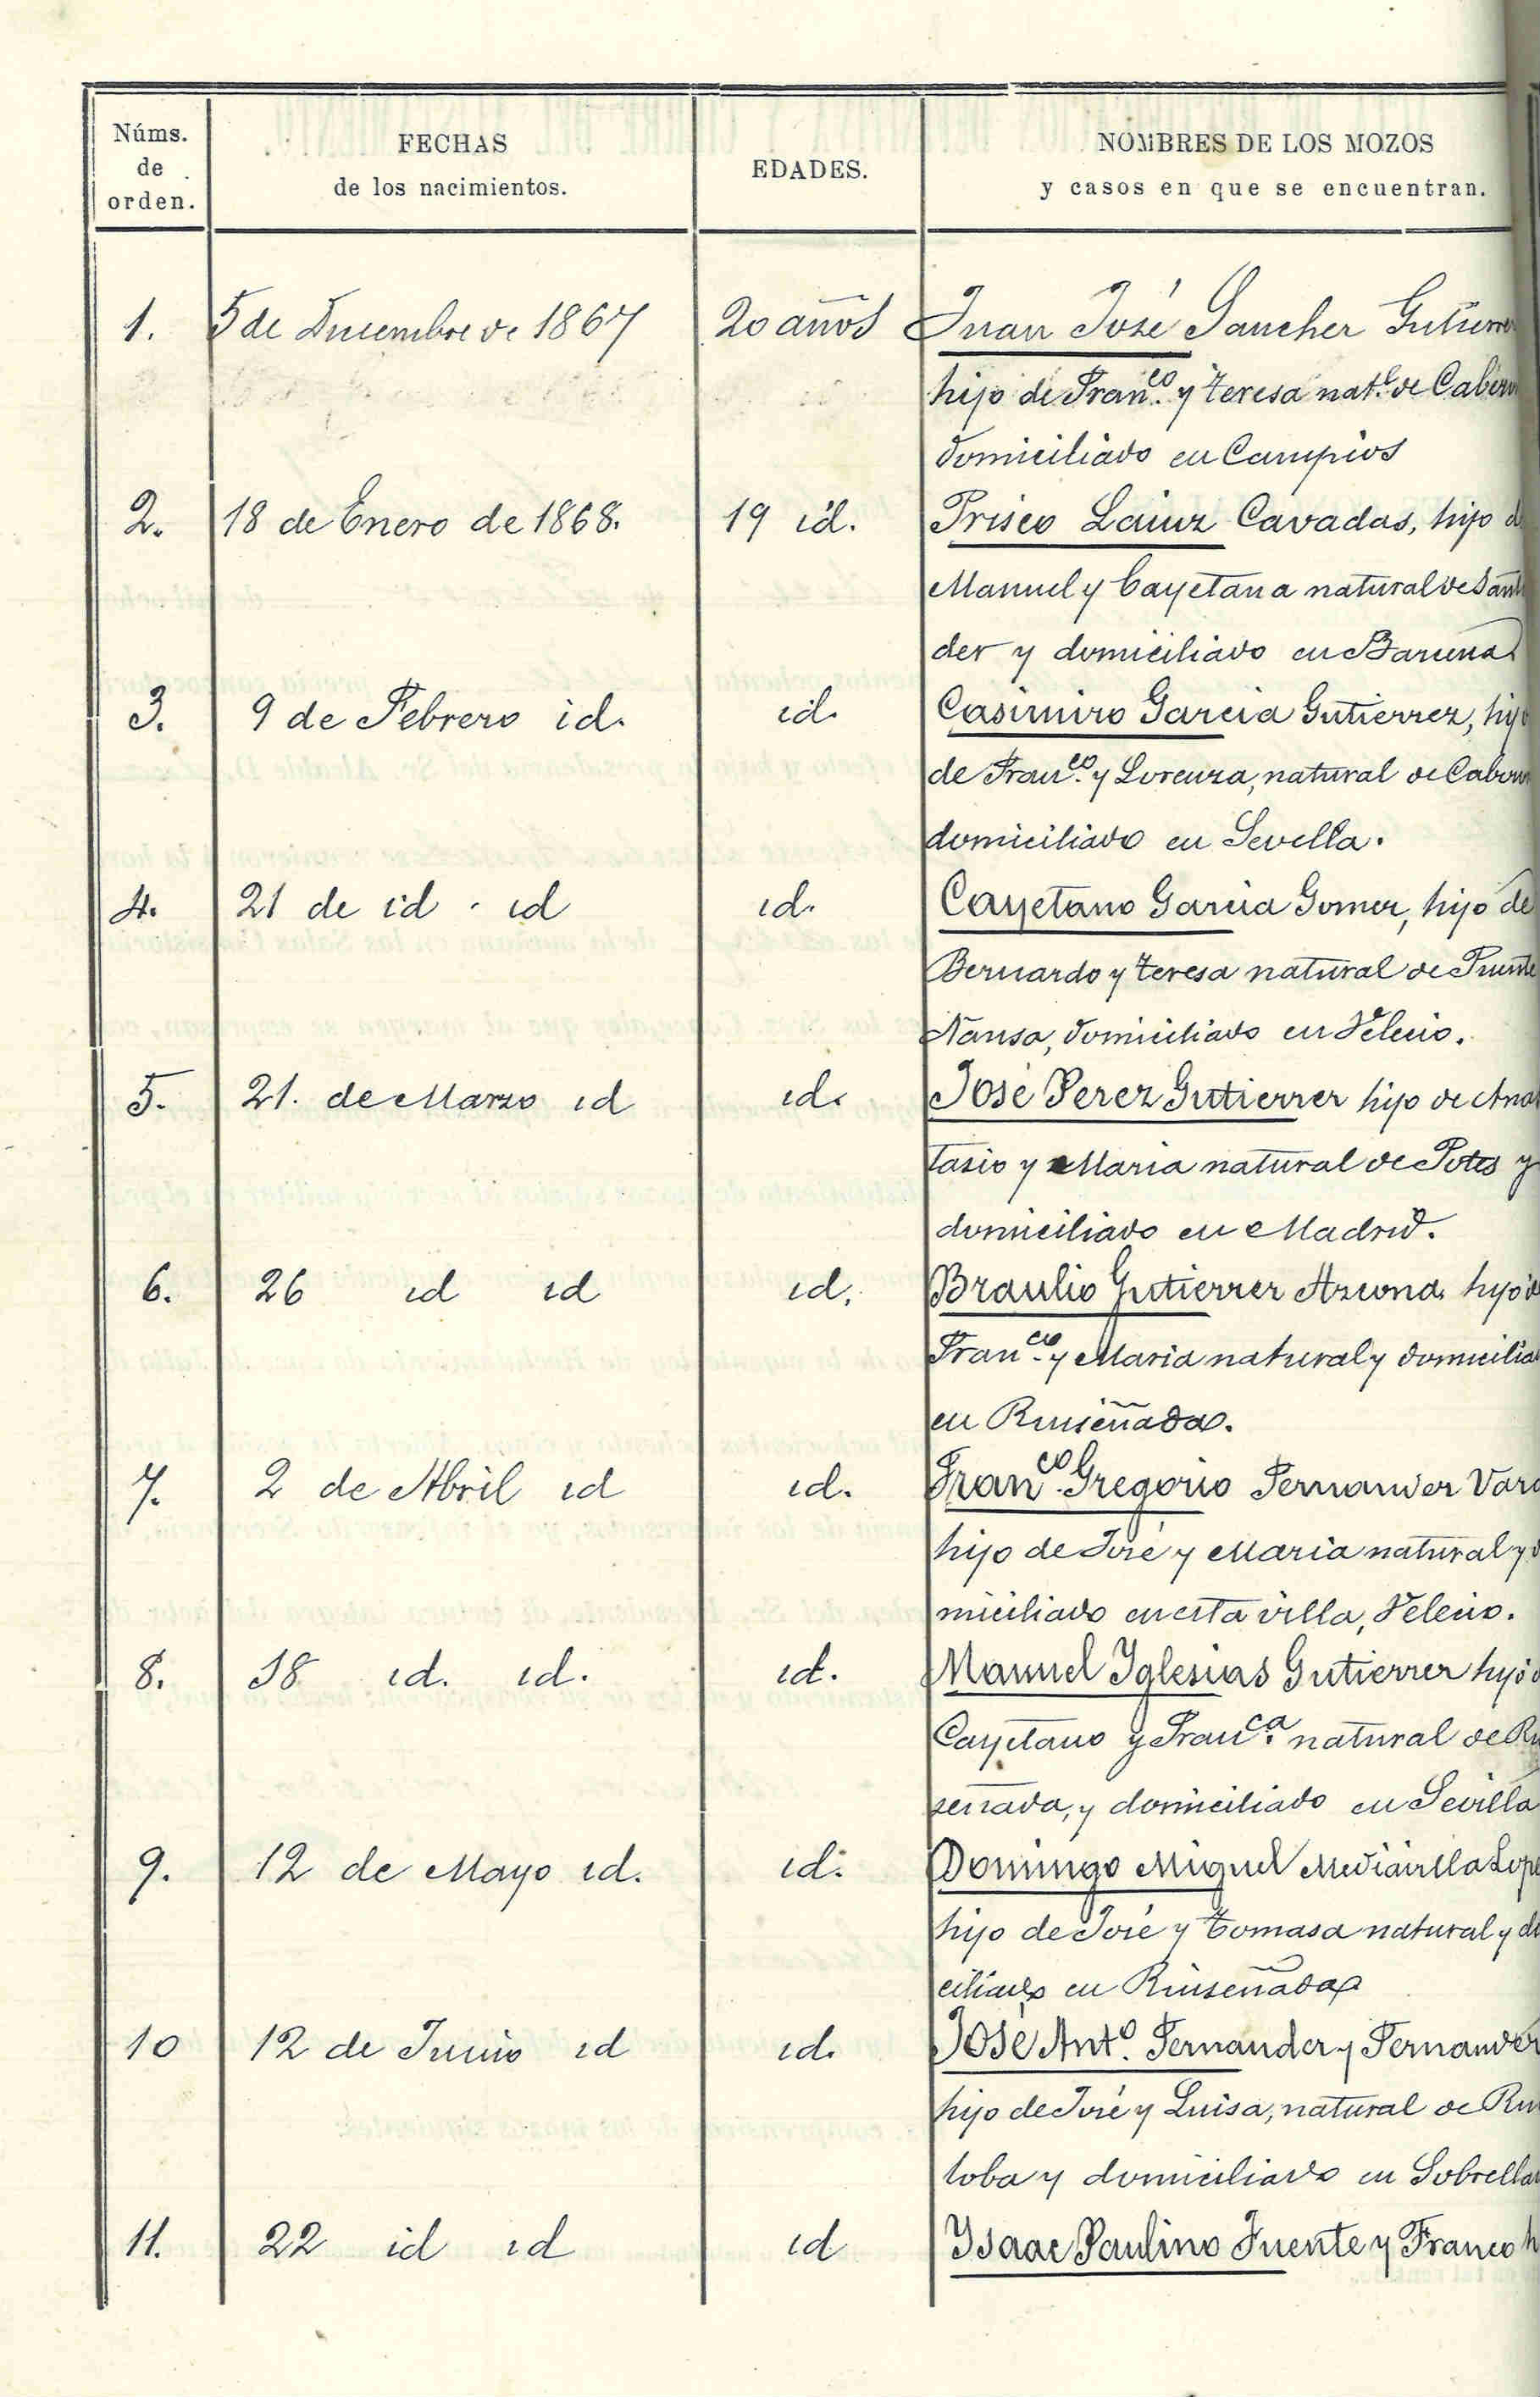 Núms. de orden.
FECHAS de los nacimientos.
EDADES.
NOMBRES DE LOS MOZOS y casos en que se encuentran.
1. 5 de Diciembre de 1867 20 años Juan José Sancher
hijo de Fran.co y Teresa nat.l de
domiciliado en Campios
2. 18 de Enero de 1868. 19 id. Prisco Lainz Cavadas, hijo
Manuel y Cayetana natural de San
der y domiciliado en
3. 9 de Febrero id. id. Casimiro Garcia Gutierrez, hijo
de Fran.co y Lorenza, natural de
domiciliado en Sevilla.
4. 21 de id. id id. Cayetano Garcia Gomer, hijo de
Bernardo y Teresa natural de Puente
Nansa, domiciliado en Velecio.
5. 21. de Marzo id id. José Perez Gutierrer hijo de Anas
tasio y Maria natural de Potes y
domiciliado en Madrid.
6. 26 id id id. Braulio Gutierrer Ascona hijo
Fran.co y Maria natural y domicilia
en Ruiseñada.
7. 2 de Abril id id. Fran.co Gregorio Fernander
hijo de José y Maria natural y
miciliado en esta villa, Velecio.
8. 18 id. id. id. Manuel Iglesias Gutierrer hijo
Cayetano y Fran.ca natural de Rui
señada, y domiciliado en Sevilla
9. 12 de Mayo id. id. Domingo Miguel Mediavilla Lope
hijo de José y Tomasa natural y do
ciliado en Ruiseñada
10 12 de Junio id id. José Ant.o Fernander y Fernander
hijo de José y Luisa, natural de Rui
loba y domiciliado en Sobrella
11. 22 id id id Ysaac Paulino Fuente y Franco h